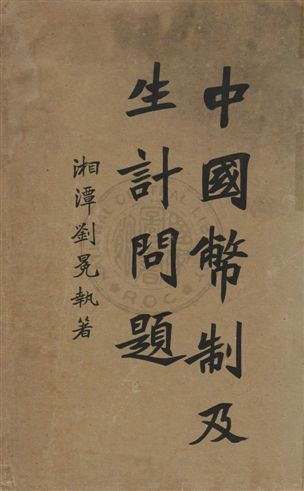 中國幣制及
生計問題
湘潭劉冕執著